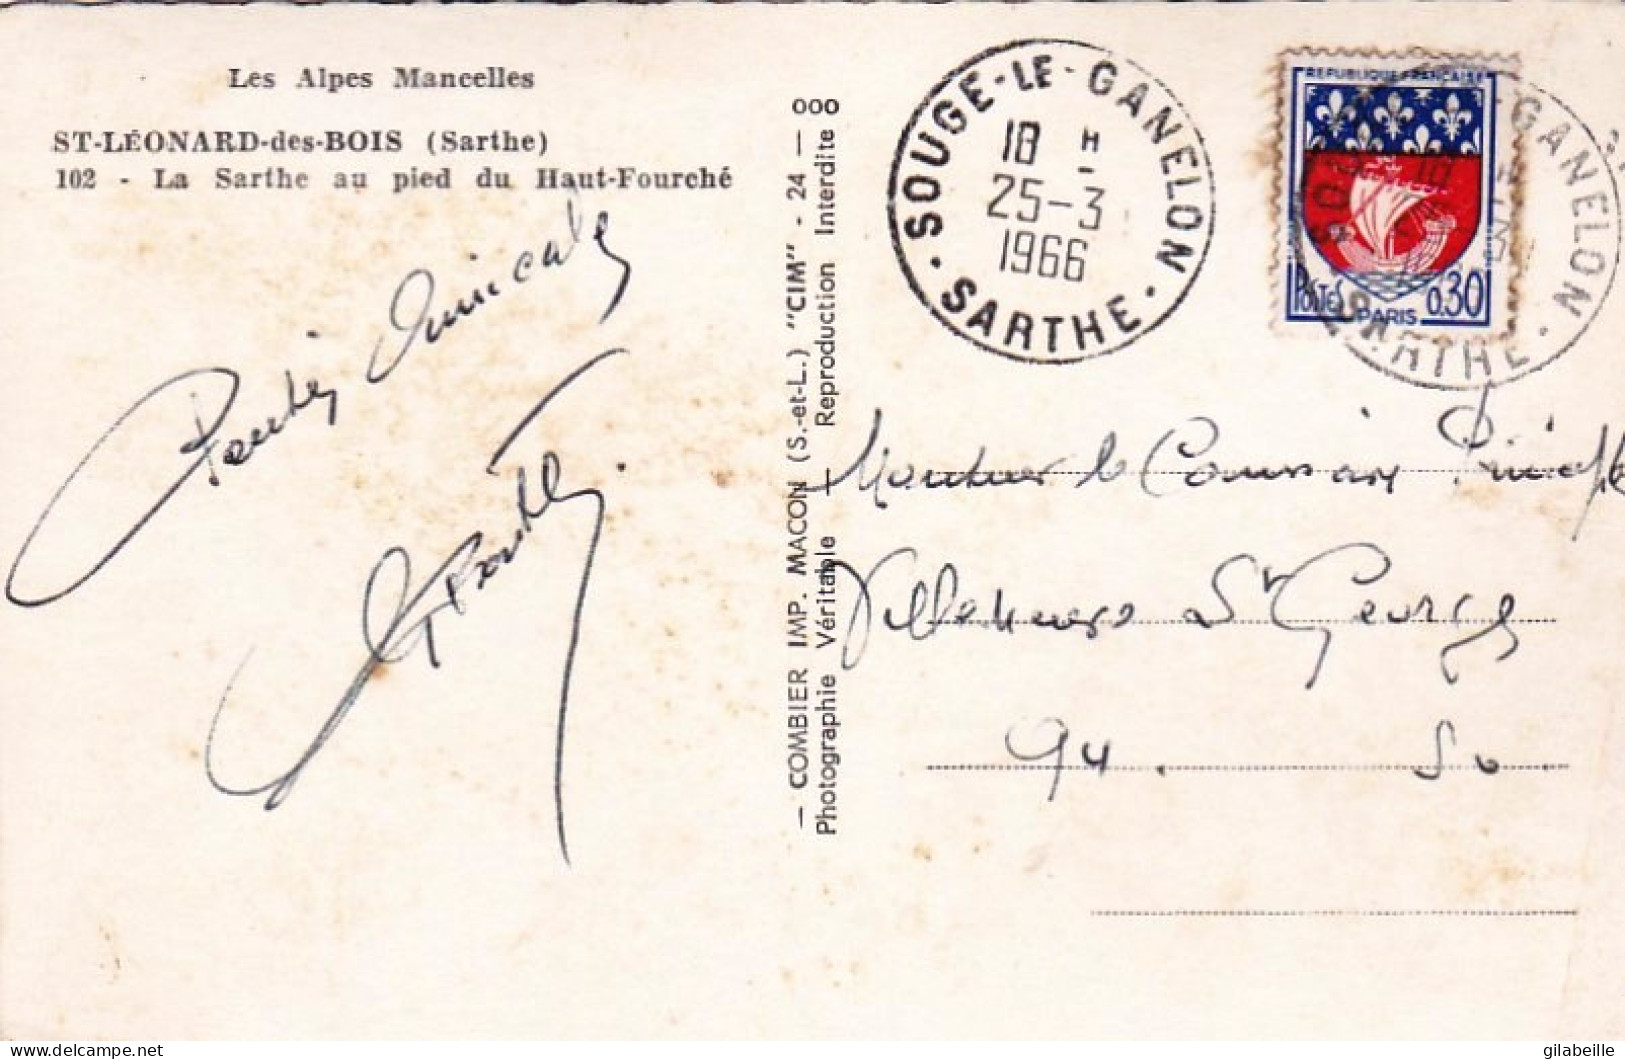 Les Alpes Mancelles
ST-LÉONARD-des-BOIS (Sarthe)
102 - La Sarthe au pied du Haut-Fourché
Amicale
— COMBIER IMP. MACON (S.-et-L.) "CIM" - 24 — OOO
Photographie Véritable — Reproduction Interdite O
SOUGE-LE-GANELON
18 H
25-3
1966
SARTHE
REPUBLIQUE FRANÇAISE
POSTES
PARIS
0,30
GANELON
Monsieur le Commissaire Principal
Villeneuve St Georges
94.
gilabeille